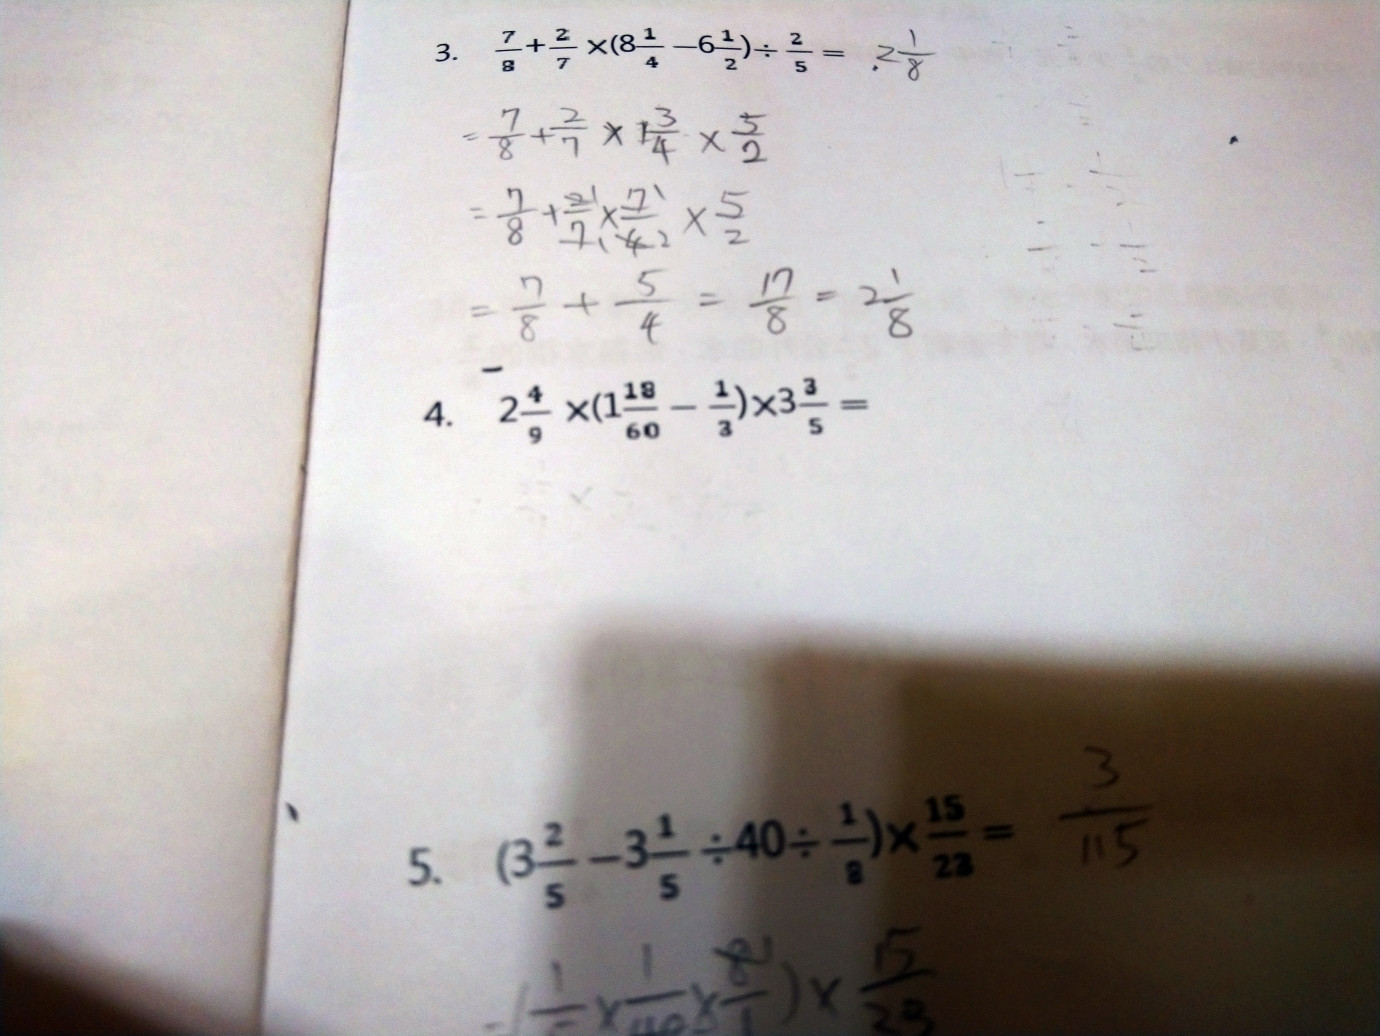 3. 7/8 + 2/7 ×(8 1/4 − 6 1/2)÷ 2/5 = 2 1/8
= 7/8 + 2/7 × 1 3/4 × 5/2
= 7/8 + 2/7 × 7/4 × 5/2
= 7/8 + 5/4 = 17/8 = 2 1/8
4. 2 4/9 ×(1 18/60 − 1/3)×3 3/5 =
5. (3 2/5 − 3 1/5 ÷40÷ 1/8)× 15/23 = 3/115